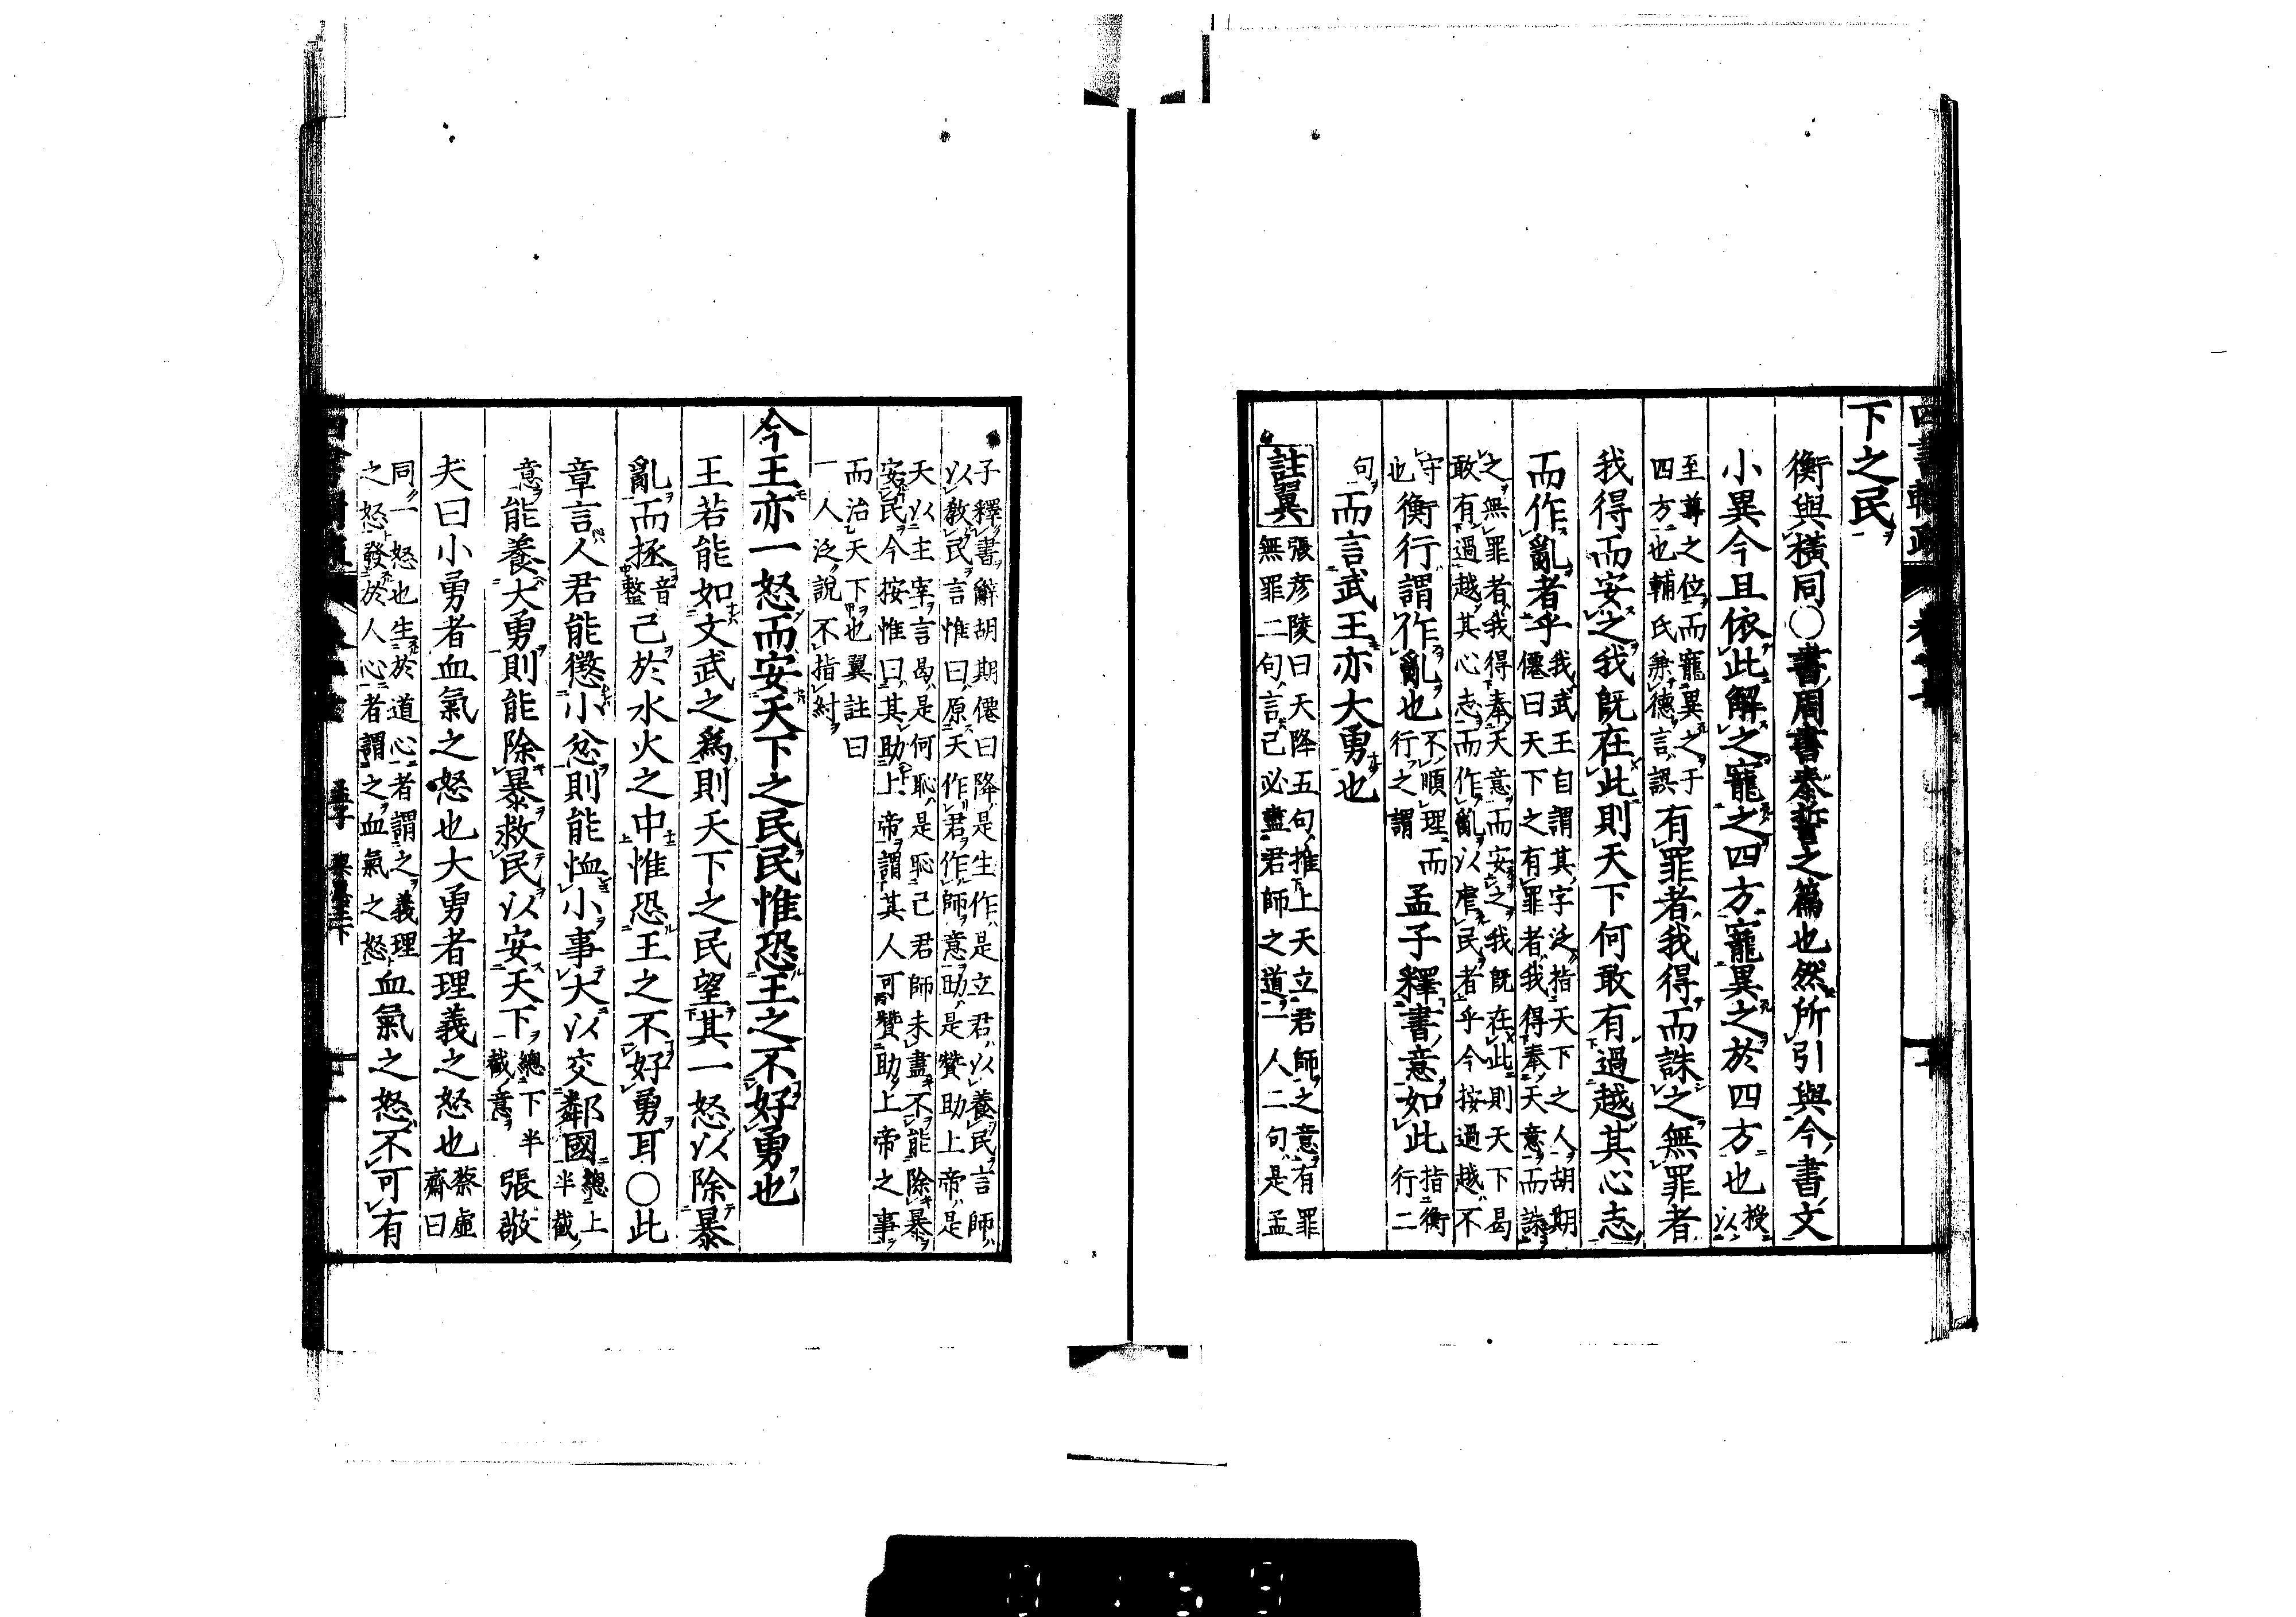 下之民
衡與橫同○書周書泰誓之篇也然所引與今書文
小異今且依此解之寵之四方寵異之於四方也授以
至尊之位而寵異之于
四方也輔氏兼德言誤
有罪者我得而誅之無罪者
我得而安之我既在此則天下何敢有過越其心志
而作亂者乎
我武王自謂其字泛指天下之人胡期
僊曰天下之有罪者我得奉天意而誅
之無罪者我得奉天意而安之我既在此則天下曷
敢有過越其心志而作亂以虐民者乎今按過越不
守
也
衡行謂作亂也
不順理而
行之謂
孟子釋書意如此
指衡
行二
句
而言武王亦大勇也
註翼
張彦陵曰天降五句推上天立君師之意有罪
無罪二句言己必盡君師之道一人二句是孟
子釋書辭胡期僊曰降是生作是立君以養民言師
以教民言惟曰原天作君作師意助是贊助上帝是
天以主宰言曷是何恥是恥己君師未盡不能除暴
安民今按惟曰其助上帝謂其人可贊助上帝之事
而治天下也翼註曰
一人泛說不指紂
今王亦一怒而安天下之民民惟恐王之不好勇也
王若能如文武之爲則天下之民望其一怒以除暴
亂而拯
音
整
己於水火之中惟恐王之不好勇耳○此
章言人君能懲小忿則能恤小事大以交鄰國
總上
半截
意
能養大勇則能除暴救民以安天下
總下半
一截意
張敬
夫曰小勇者血氣之怒也大勇者理義之怒也
蔡虛
齋曰
同一怒也生於道心者謂之義理
之怒發於人心者謂之血氣之怒
血氣之怒不可有
孟子